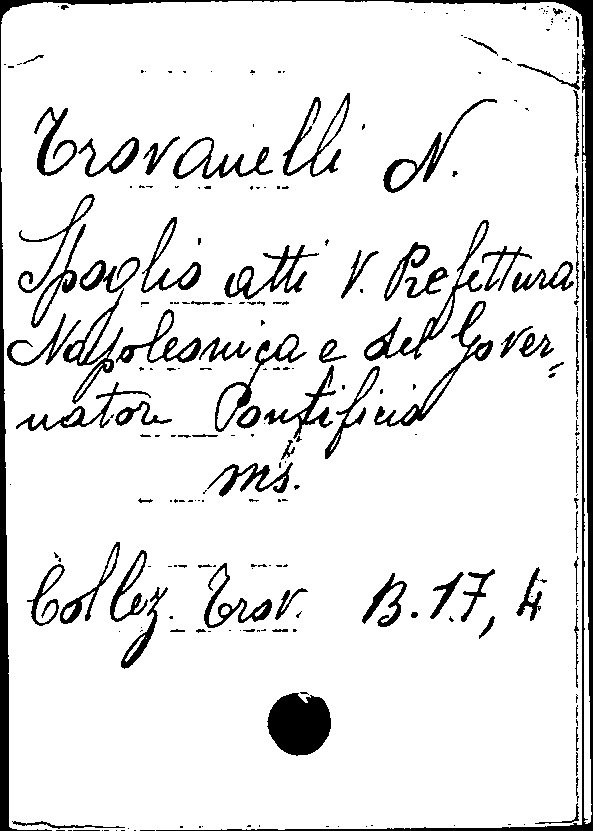 Trovanelli N.
Spoglio atti V. Prefettura
Napoleonica e del Gover=
natore Pontificio
ms.
Collez. Trov. B.17, 4